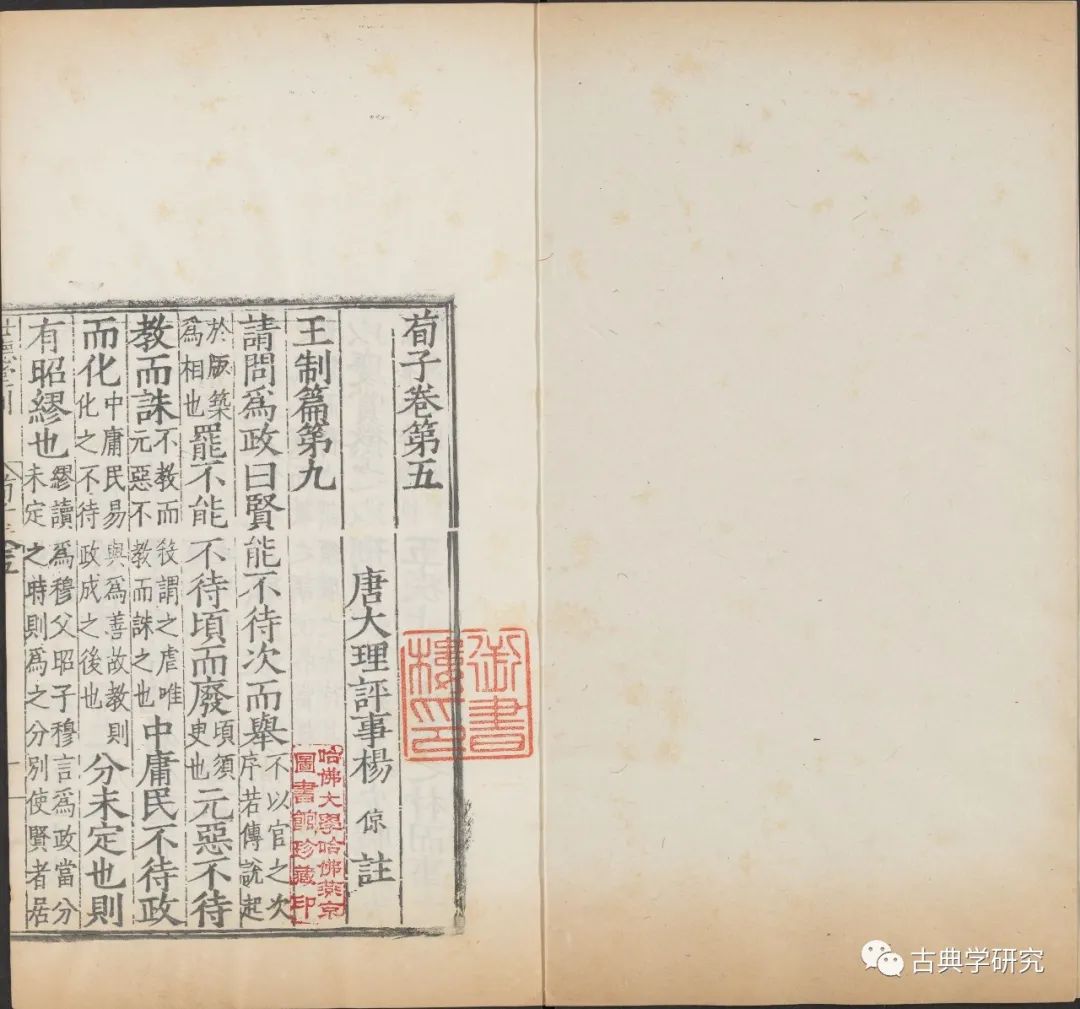 荀子卷第五
唐大理評事楊倞註
王制篇第九
請問爲政曰賢能不待次而舉不以官之次序若傳說起
於版築爲相也罷不能不待頃而廢頃須臾也元惡不待
教而誅不教而殺謂之虐唯元惡不教而誅之也中庸民不待政
而化中庸民易與爲善故教則化之不待政成之後也分未定也則
有昭繆也繆讀爲穆父昭子穆言爲政當分未定之時則爲之分別使賢者居
御書樓印
哈佛大學哈佛燕京
圖書館珍藏印
古典学研究